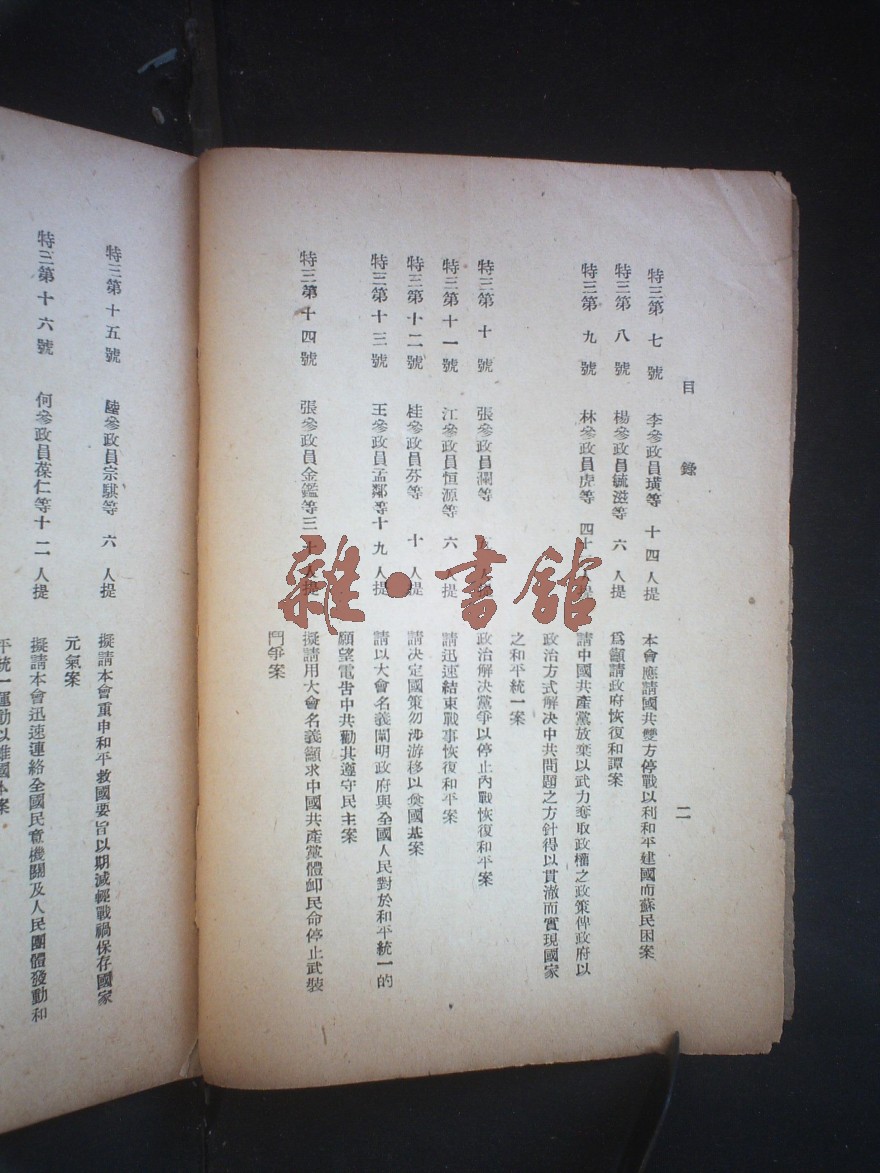 目 錄 二
特三第 七 號 李參政員璜等 十 四 人提 本會應請國共雙方停戰以利和平建國而蘇民困案
特三第 八 號 楊參政員毓滋等 六 人提 爲籲請政府恢復和譚案
特三第 九 號 林參政員虎等 四十 人提 請中國共產黨放棄以武力奪取政權之政策俾政府以
政治方式解決中共問題之方針得以貫澈而實現國家
之和平統一案
特三第 十 號 張參政員瀾等 人提 政治解決黨爭以停止內戰恢復和平案
特三第 十一 號 江參政員恒源等 六 人提 請迅速結束戰事恢復和平案
特三第 十二 號 桂參政員芬等 十 人提 請決定國策勿涉游移以奠國基案
特三第 十 三 號 王參政員孟鄰等十 九 人提 請以大會名義闡明政府與全國人民對於和平統一的
願望電告中共勸其遵守民主案
特三第 十 四 號 張參政員金鑑等三 十 人提 擬請用大會名義籲求中國共產黨體卹民命停止武裝
鬥爭案
特三第 十 五 號 陸參政員宗騏等 六 人提 擬請本會重申和平救國要旨以期減輕戰禍保存國家
元氣案
特三第 十 六 號 何參政員葆仁等十 二 人提 擬請本會迅速連絡全國民意機關及人民團體發動和
平統一運動以維國本案
雜·書館